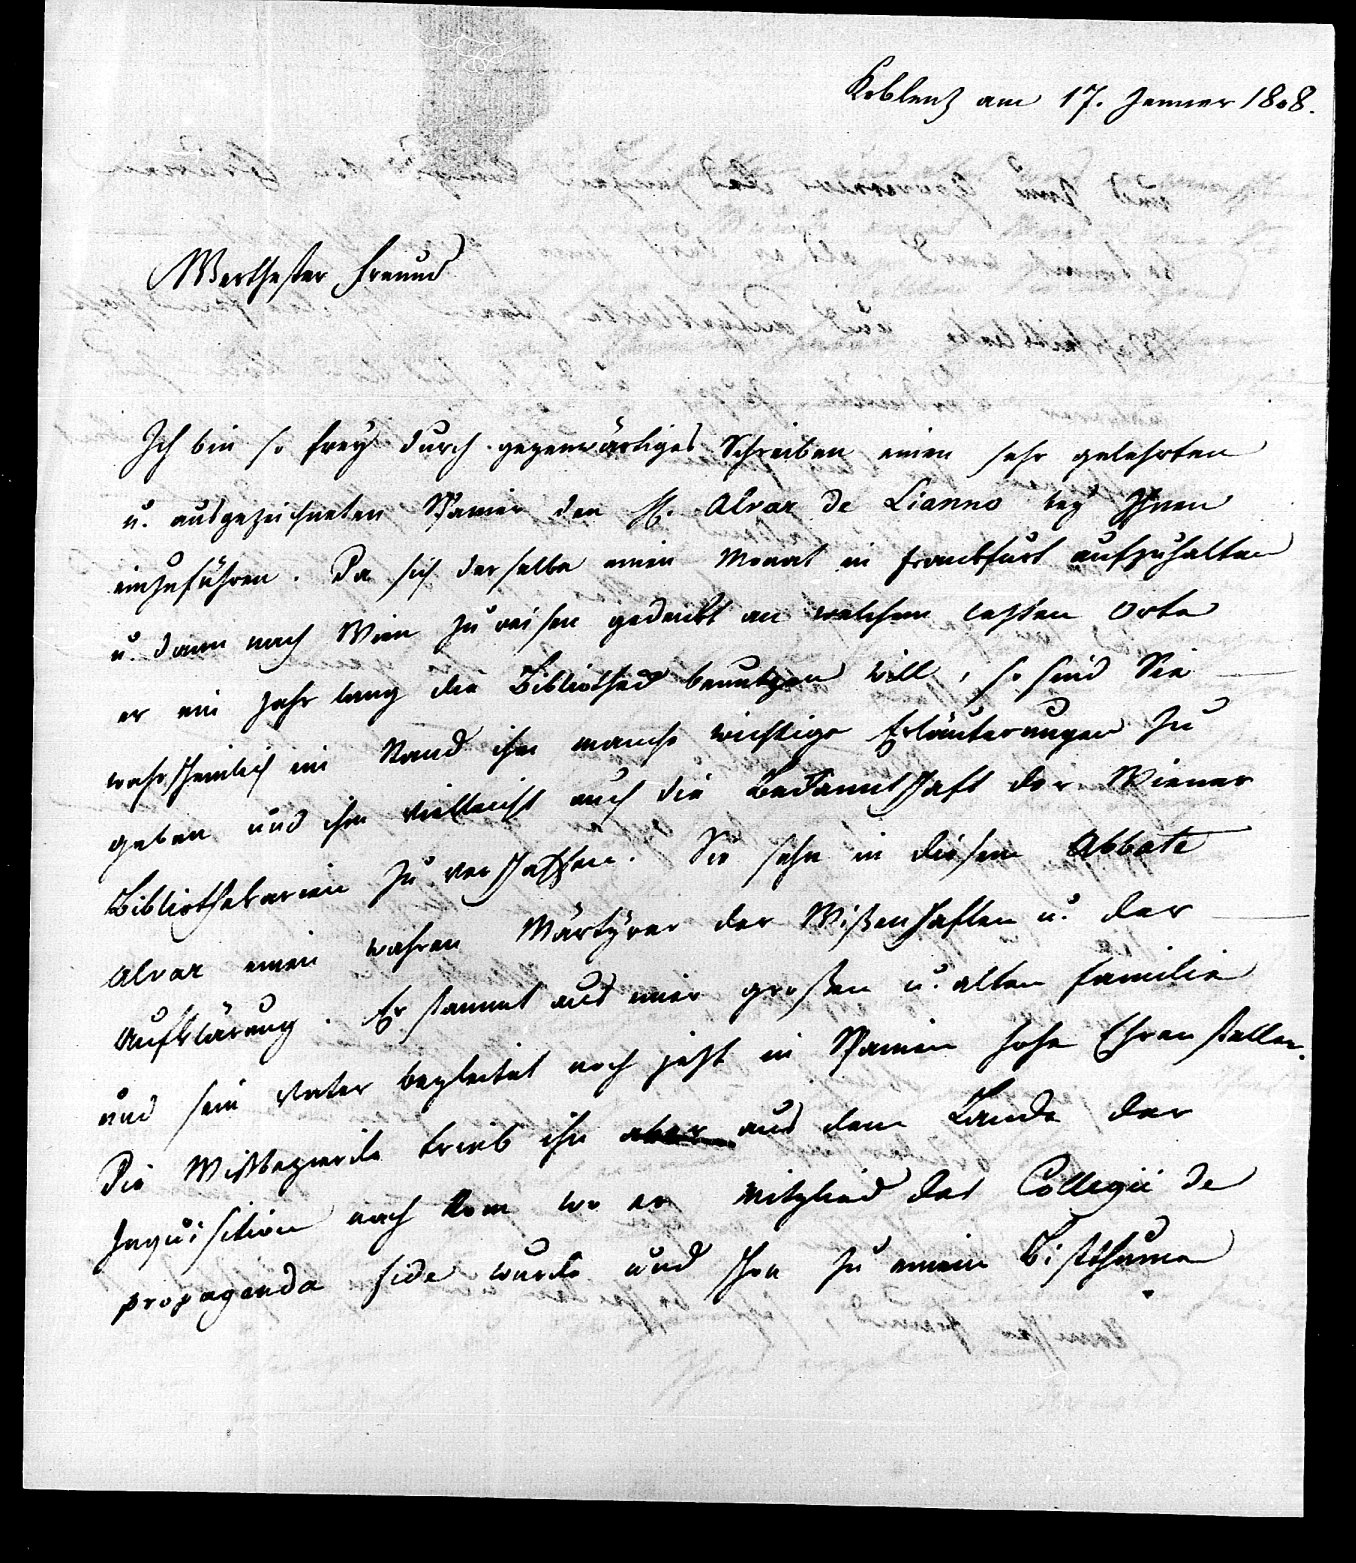 Koblenz am 17. Jenner 1808.
Werthester Freund
Ich bin so frey durch gegenwärtiges Schreiben einen sehr gelehrten
u. ausgezeichneten Spanier den H. Alvar de Lianno bey Ihnen
einzuführen. Da sich derselbe einen Monat in Frankfurt aufzuhalten
u. dann nach Wien zu reisen gedenkt an welchem letzten Orte
er ein Jahr lang die Bibliothek benutzen will, so sind Sie
wahrscheinlich im Stand ihm manche wichtige Erläuterungen zu
geben und ihm vielleicht auch die Bekanntschaft der Wiener
Bibliothekarien zu verschaffen. Sie sehn in diesem Abbate
Alvar einen wahren Märtÿrer der Wißenschaften u. der
Aufklärung. Er stammt aus einer großen u. alten Familie
und sein Vater begleitet noch jetzt in Spanien hohe Ehrenstellen.
Die Wißbegierde trieb ihn aber aus dem Lande der
Inquisition nach Rom wo er Mitglied des Collegii de
propaganda fide wurde und schon zu einem Bisthume